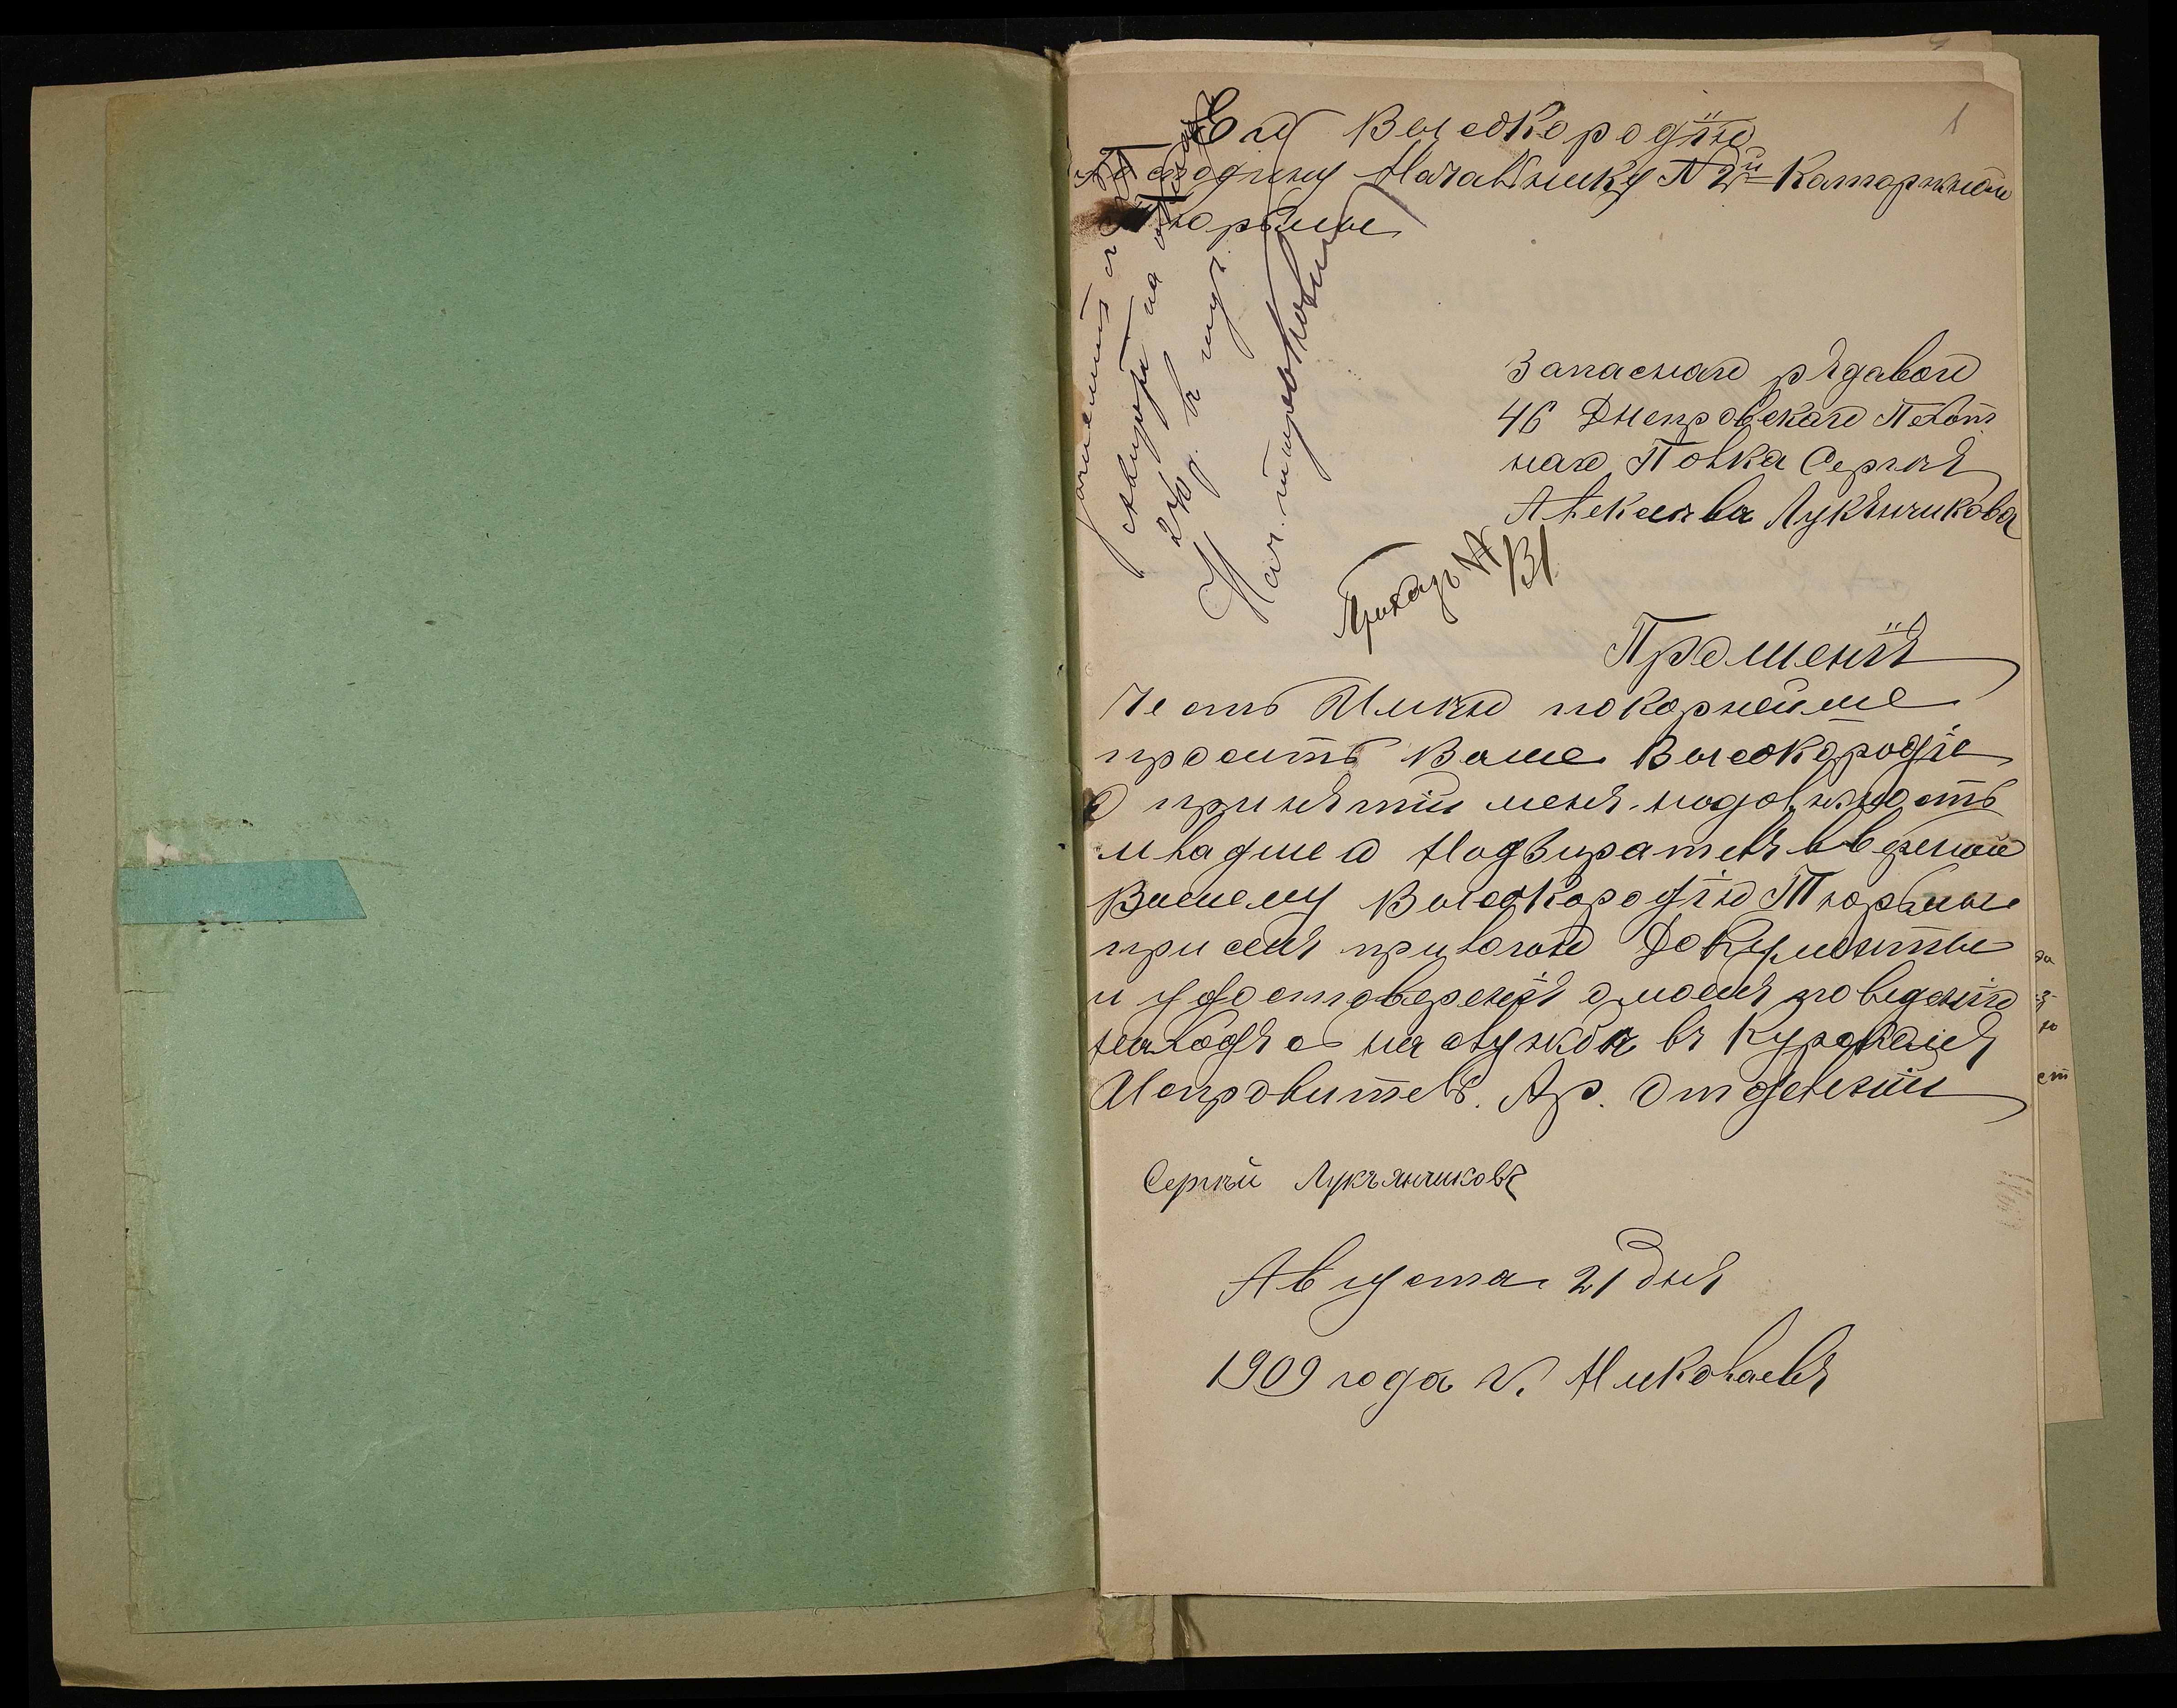 1
Его Высокородію
Господину Началнику N 2й Каторжной
Тюрьмы
Запаснаго рядавого
46 Днепровскаго Пехот
наго Полка Сергѣя
Алексѣева Лукянчикова
Приказъ №
131
Прошенія
Честь Имѣю покорнейше
просить Ваше Высокородіе
О принятіи меня надолжность
младшего Надзирателя ввереной
Вашему Высокородію Тюрьмы
при семъ прилогою Документы
и удостоверенія омоемъ поведеніе
находясь на службѣ въ Курскомъ
Исправитель. Ар. Отделеніи
Сергѣй Лукъянчиковъ
Августа 21 дня
1909 года г. Николаевъ